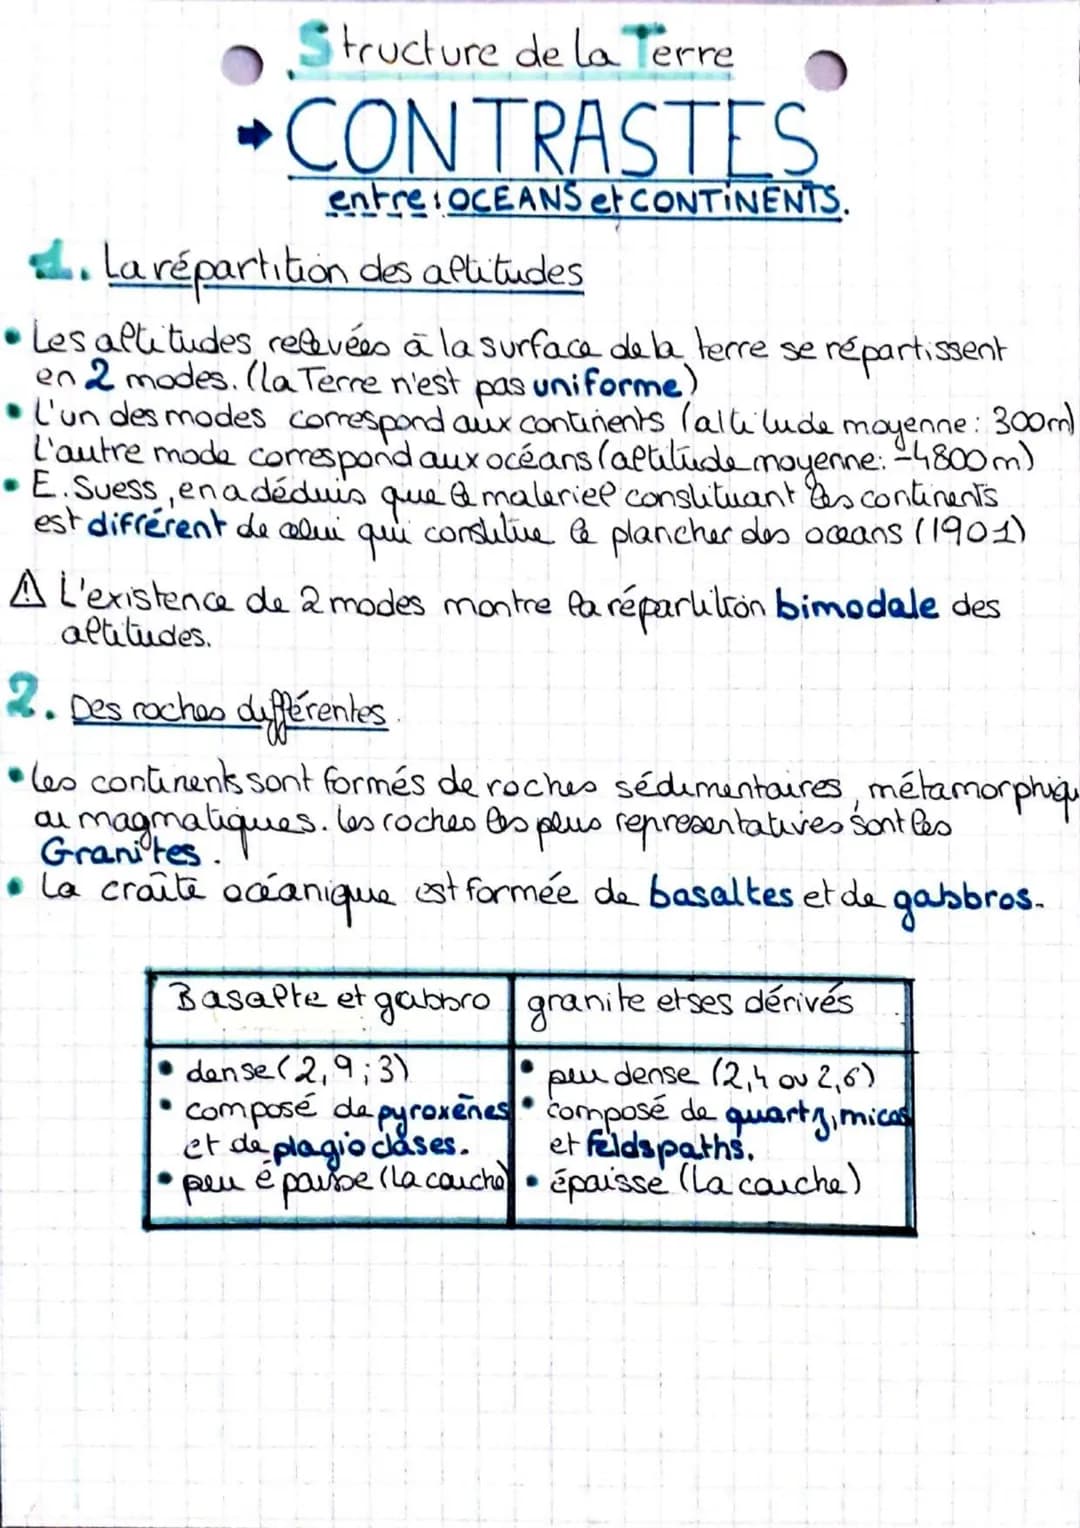 Structure de la Terre
→ CONTRASTES
entre : OCEANS et CONTINENTS.
1. La répartition des altitudes
• Les altitudes relevées à la surface de la terre se répartissent
en 2 modes. (la Terre n'est pas uniforme)
• L'un des modes correspond aux continents (altitude moyenne : 300m)
L'autre mode correspond aux océans (altitude moyenne : -4800m)
• E. Suess, en a déduis que le materiel constituant les continents
est différent de celui qui constitue le plancher des oceans (1901)
⚠ L'existence de 2 modes montre la répartition bimodale des
altitudes.
2. Des roches différentes.
• les continents sont formés de roches sédimentaires, métamorphiqu
ou magmatiques. les roches les plus representatives sont les
Granites.
• La croûte océanique est formée de basaltes et de gabbros.
Basalte et gabbro
granite et ses dérivés
• dense (2,9 ; 3)
• composé de pyroxènes
et de plagioclases.
• peu épaisse (la couche)
• peu dense (2,4 ou 2,6)
• composé de quartz, micas
et feldspaths.
• épaisse (la couche)